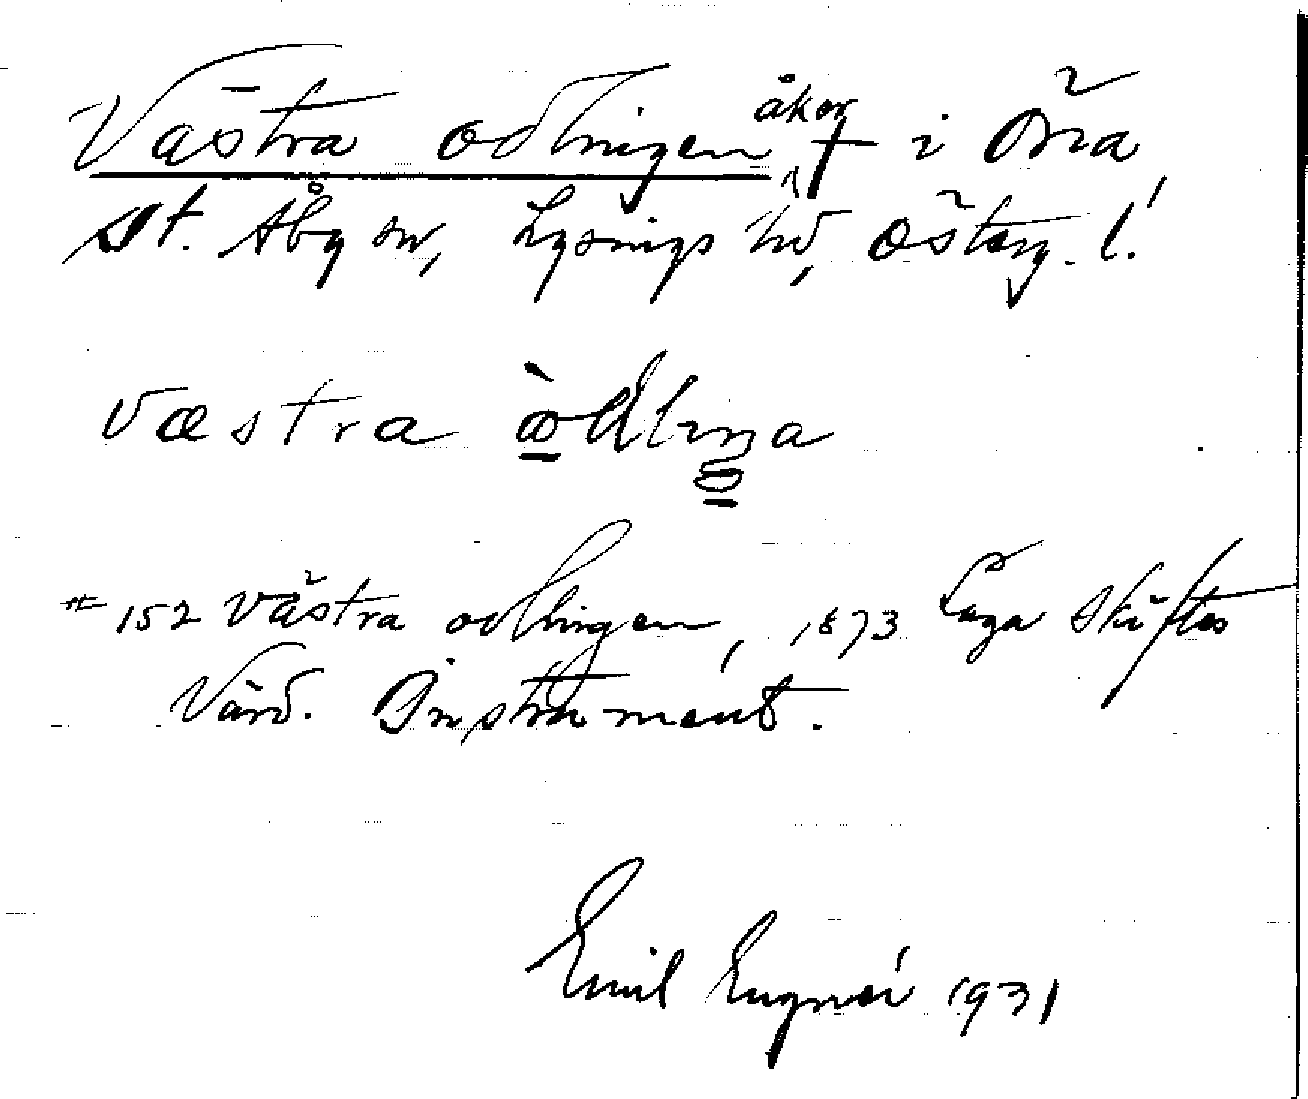 Västra odlingen åker † i Öna
St. Åby sn, Lysings hd, Österg. l.
væstra
# 152 Västra odlingen, 1873 Laga skiftes
Värd. Instrument.
Emil Eugnér 1931